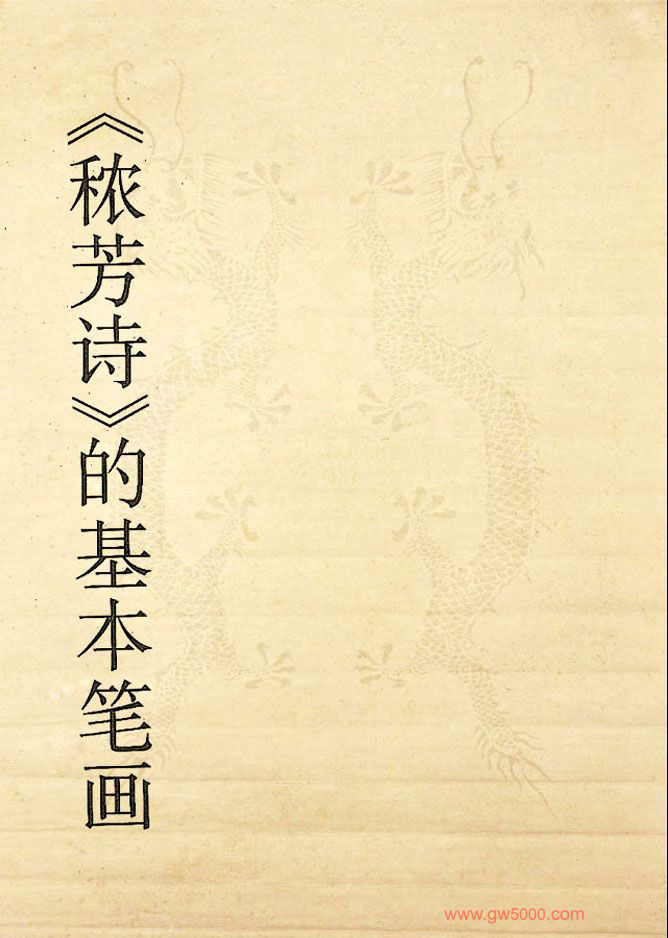 《秾芳诗》的基本笔画
www.gw5000.com